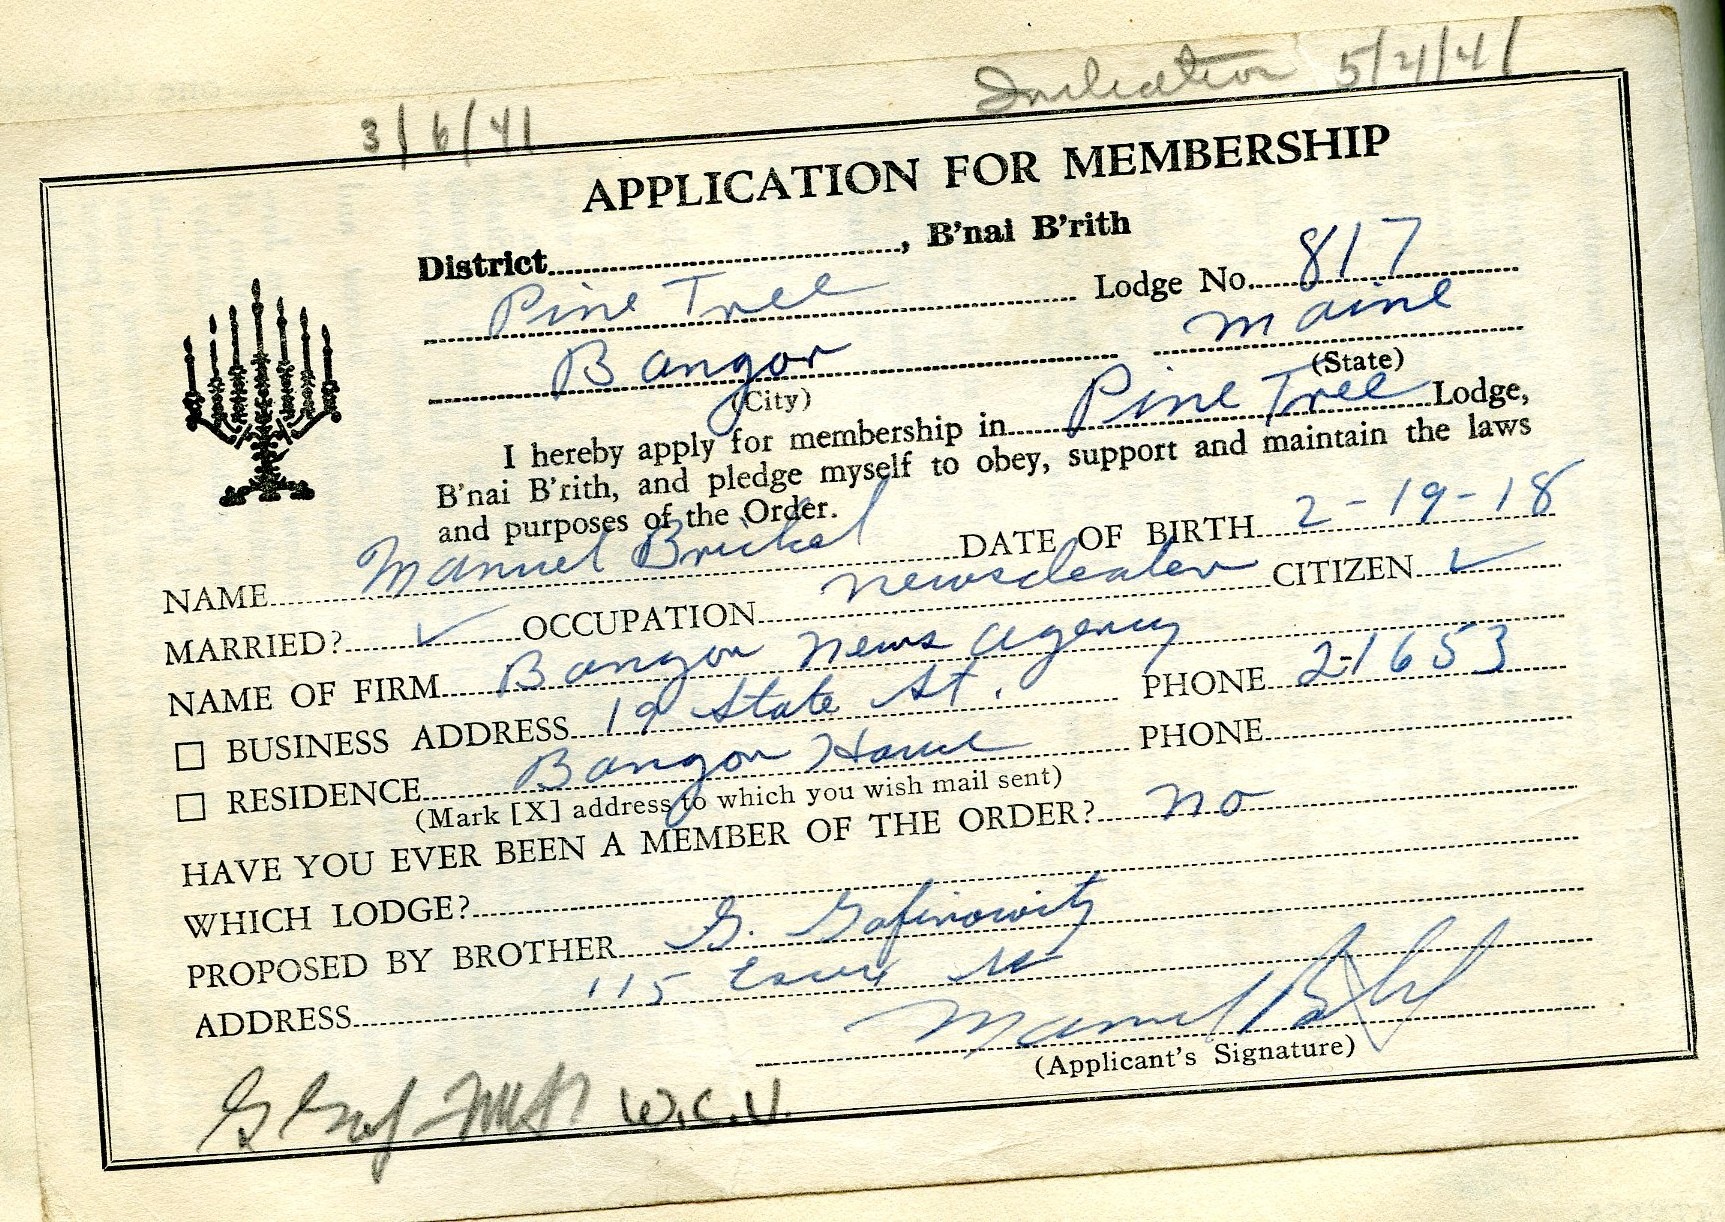 3/6/41
Initiation 5/4/41
APPLICATION FOR MEMBERSHIP
District, B'nai B'rith
Pine Tree Lodge No. 817
Bangor Maine
(City) (State)
I hereby apply for membership in Pine Tree Lodge,
B'nai B'rith, and pledge myself to obey, support and maintain the laws
and purposes of the Order.
NAME Manuel Brickel DATE OF BIRTH 2-19-18
MARRIED? ✓ OCCUPATION newsdealer CITIZEN ✓
NAME OF FIRM Bangor News Agency
☐ BUSINESS ADDRESS 19 State St. PHONE 2-1653
☐ RESIDENCE Bangor House PHONE
(Mark [X] address to which you wish mail sent)
HAVE YOU EVER BEEN A MEMBER OF THE ORDER? no
WHICH LODGE?
PROPOSED BY BROTHER G. Gafinowitz
ADDRESS 115 Essex St
Manuel
(Applicant's Signature)
W.C.V.